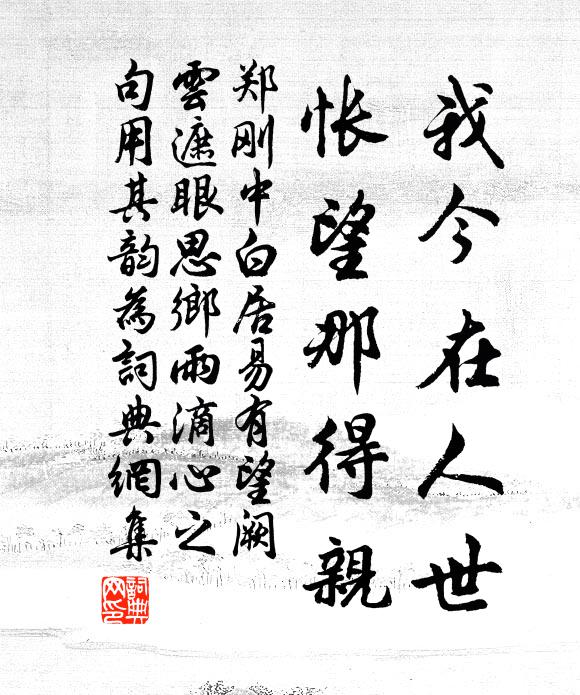 我今在人世
悵望那得親
郑刚中白居易有望阙
雲遮眼思鄉雨滴心之
句用其韵為詞典網集
詞典